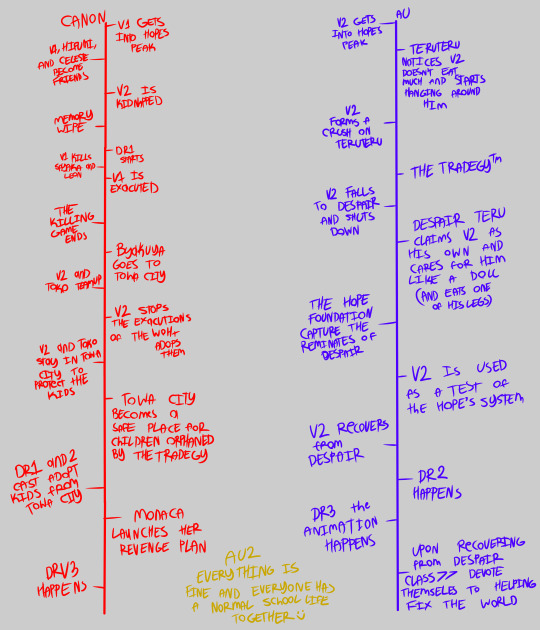 CANON
V1 GETS
INTO HOPES
PEAK
V1, HIFUMI,
AND CELESTE
BECOME
FRIENDS
V2 IS
KIDNAPPED
MEMORY
WIPE
DR1
STARTS
V1 KILLS
SAYAKA AND
LEON
V1 IS
EXACUTED
THE
KILLING
GAME
ENDS
BYAKUYA
GOES TO
TOWA CITY
V2 AND
TOKO TEAMUP
V2 STOPS
THE EXACUTIONS
OF THE WOH+
ADOPS
THEM
V2 AND TOKO
STAY IN TOWA
CITY TO
PROTECT THE
KIDS
TOWA CITY
BECOMES A
SAFE PLACE FOR
CHILDREN ORPHANED
BY THE TRADEGY
DR1 AND 2
CAST ADOPT
KIDS FROM
TOWA CITY
MONACA
LAUNCHES HER
REVENGE PLAN
DRV3
HAPPENS
AU
V2 GETS
INTO HOPES
PEAK
TERUTERU
NOTICES V2
DOESN'T EAT
MUCH AND STARTS
HANGING AROUND
HIM
V2
FORMS A
CRUSH ON
TERUTERU
THE TRADEGY™
V2 FALLS
TO DESPAIR
AND SHUTS
DOWN
DESPAIR TERU
CLAIMS V2 AS
HIS OWN AND
CARES FOR HIM
LIKE A DOLL
(AND EATS ONE
OF HIS LEGS)
THE HOPE
FOUNDATION
CAPTURE THE
REMINATES OF
DESPAIR
V2 IS USED
AS A TEST OF
the HOPE'S SYSTEM
V2 RECOVERS
from
DESPAIR
DR2
HAPPENS
DR3 the
ANIMATION
HAPPENS
UPON RECOVERING
FROM DESPAIR
CLASS 77 DEVOTE
THEMSELES TO HELPING
FIX THE WORLD
AU2
EVERYTHING IS
FINE AND EVERYONE HAS
A NORMAL SCHOOL LIFE
TOGETHER :)